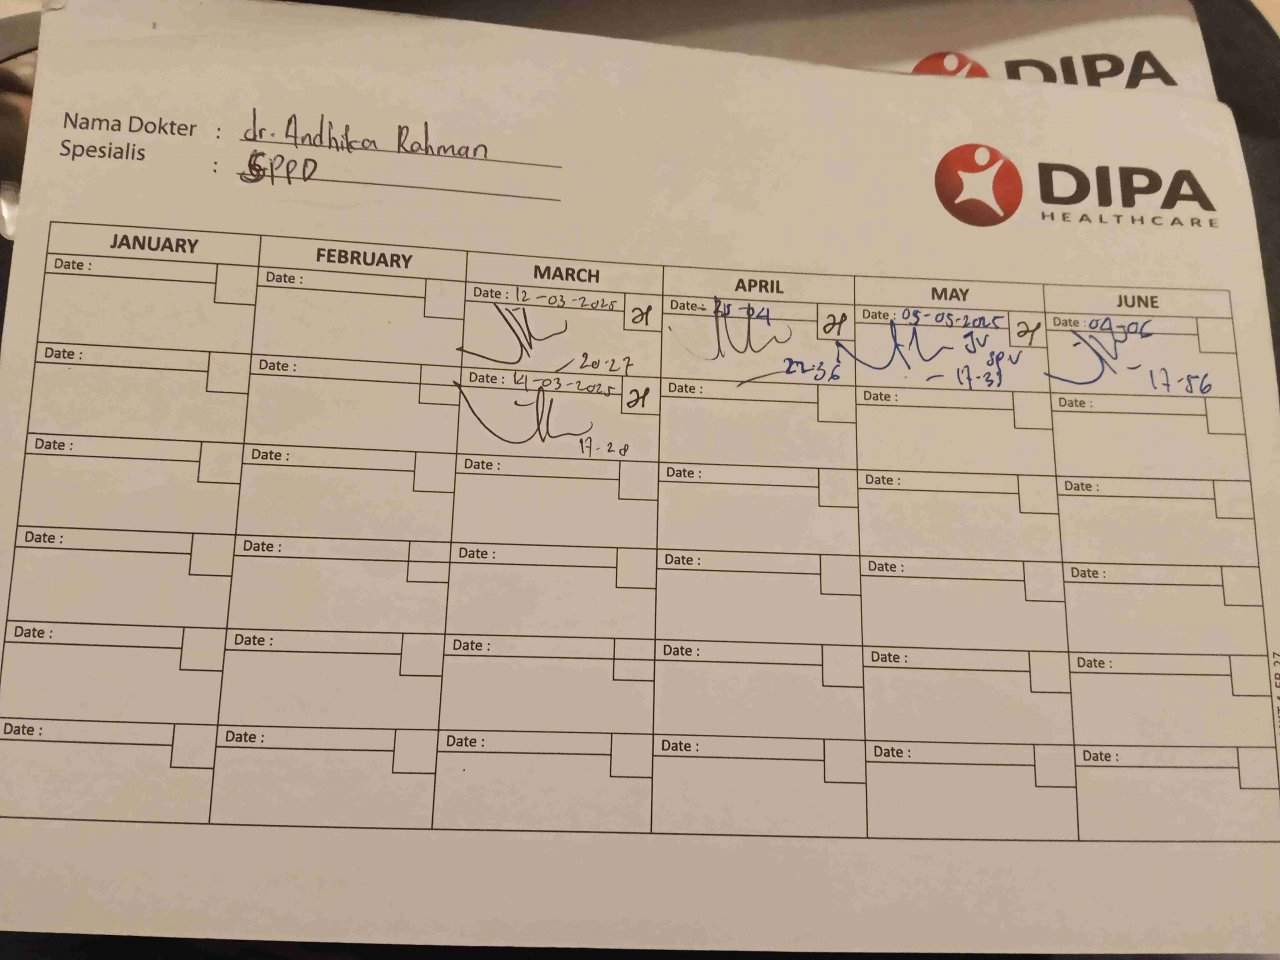 DIPA
Nama Dokter : dr. Andhika Rahman
Spesialis : SPPD
DIPA
HEALTHCARE
JANUARY FEBRUARY MARCH APRIL MAY JUNE
Date : Date : Date : 12-03-2025 Date : Date : 05-05-2025 Date : 04-06
JV
SPV
20-27 22-36 17-33 17-56
Date : Date : Date : 14-03-2025 Date : Date : Date :
17-28
Date : Date : Date : Date : Date : Date :
Date : Date : Date : Date : Date : Date :
Date : Date : Date : Date : Date : Date :
Date : Date : Date : Date : Date : Date :